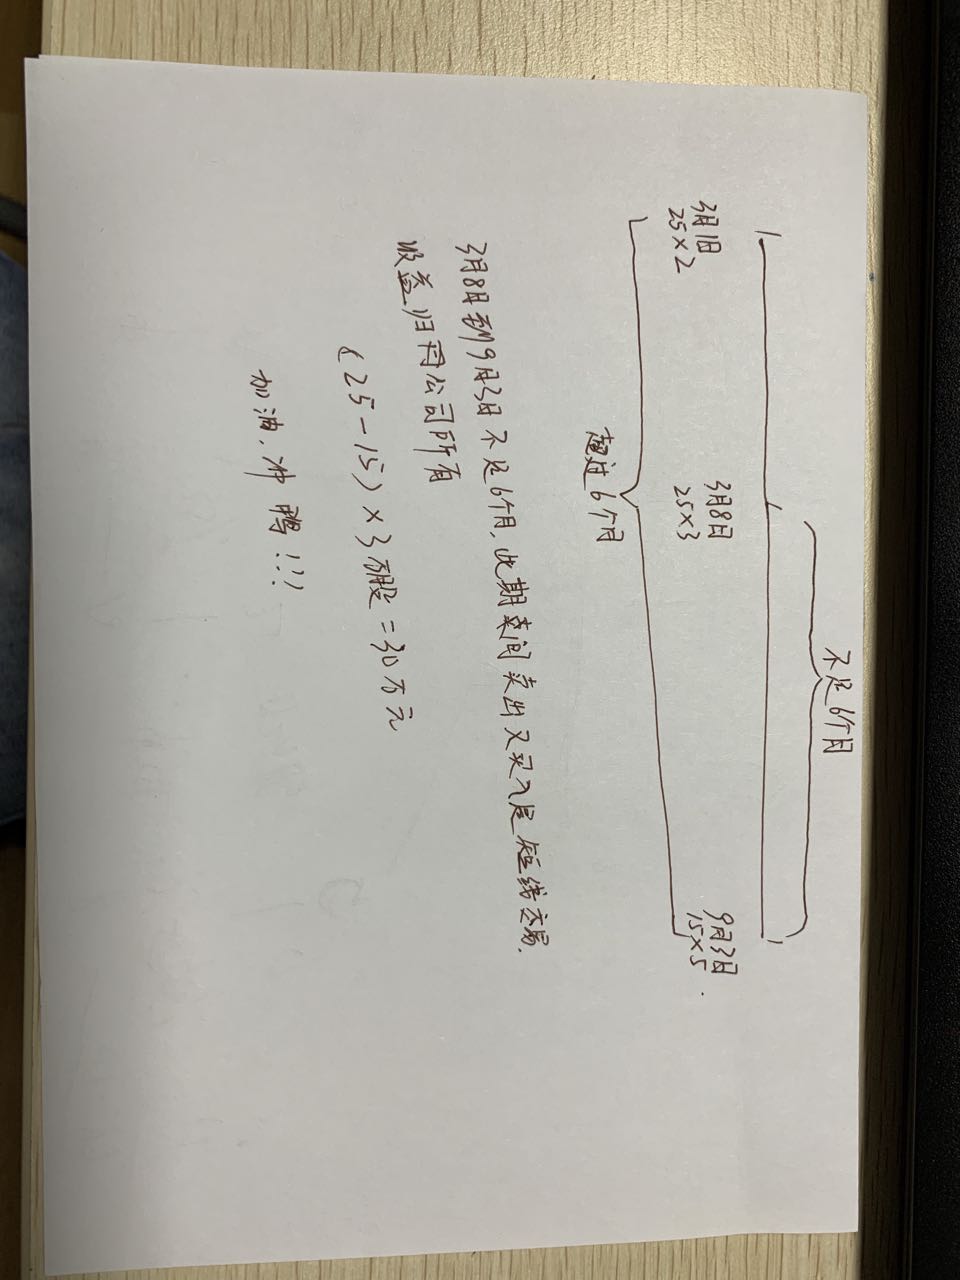 不足6个月
3月1日 3月8日 9月3日
25×2 25×3 15×5.
超过6个月
3月8日到9月3日不足6个月，此期间卖出又买入是短线交易.
收益归丙公司所有
(25-15)×3万股=30万元
加油，冲鸭！！！